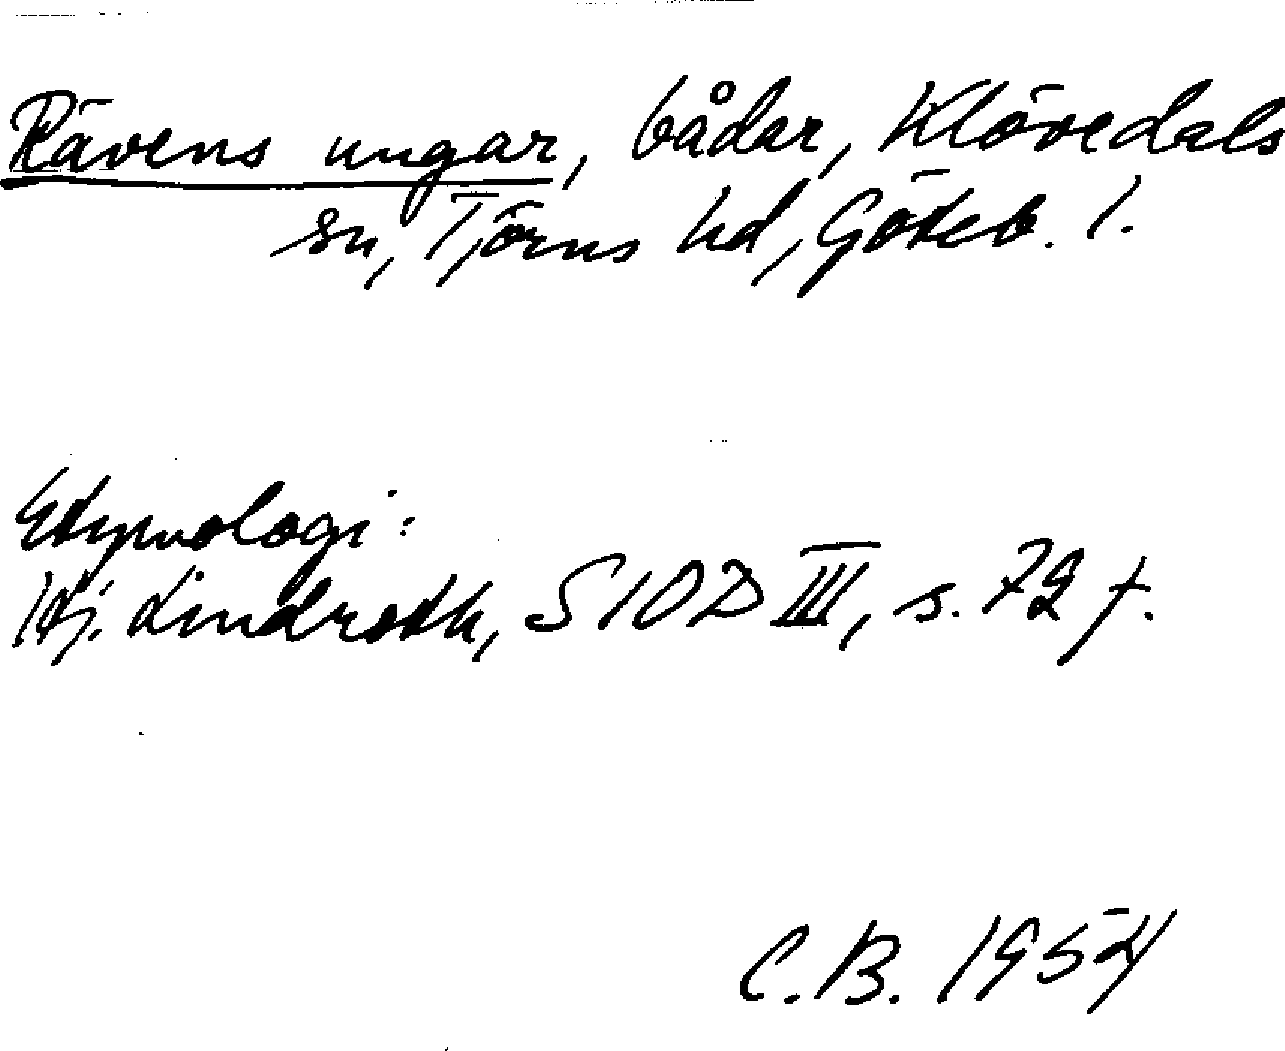 Rävens ungar, bådar, Klövedals
sn, Tjörns hd, Göteb. l.
Etymologi:
Hj. Lindroth, SIOD III, s. 72 f.
C.B. 1954